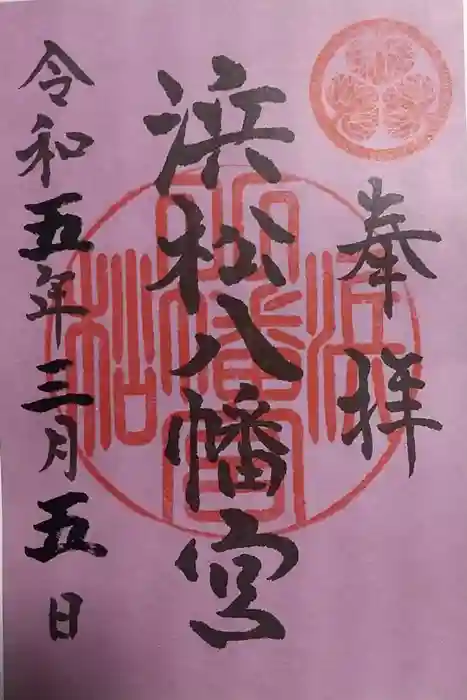 奉拝
浜松八幡宮
令和五年三月五日